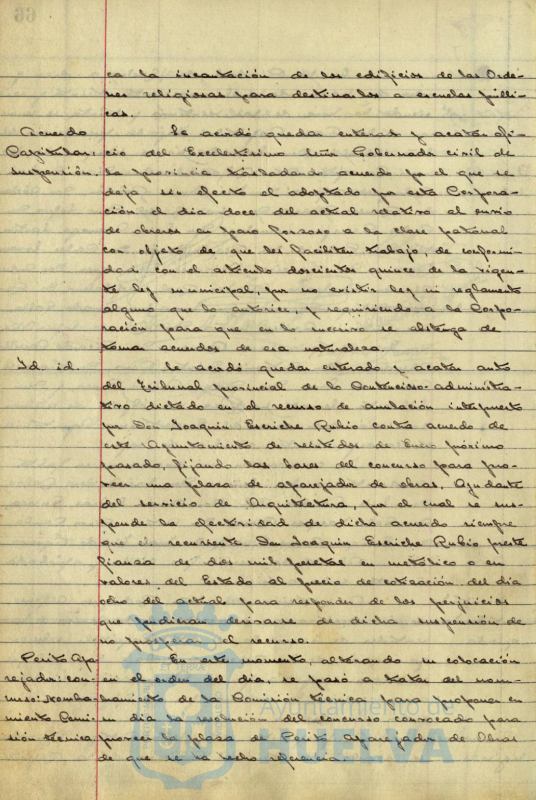 ca la incautación de los edificios de las Orde-
nes religiosas para destinarlos a escuelas públi-
cas.
Acuerdo Se acordó quedar enterado y acatar ofi-
Capitular, cio del Excelentísimo Señor Gobernador civil de
suspensión. la provincia trasladando acuerdo por el que se
deja sin efecto el adoptado por esta Corpora-
ción el día doce del actual relativo al envío
de obreros en paro forzoso a la clase patronal
con objeto de que les faciliten trabajo, de conformi-
dad con el artículo doscientos quince de la vigen-
te ley municipal, por no existir ley ni reglamento
alguno que lo autorice, y requiriendo a la Corpo-
ración para que en lo sucesivo se abstenga de
tomar acuerdos de esa naturaleza.
Id. id. Se acordó quedar enterado y acatar auto
del Tribunal provincial de lo Contencioso-administra-
tivo dictado en el recurso de anulación interpuesto
por Don Joaquin Escriche Rubio contra acuerdo de
este Ayuntamiento de veintidos de Enero próximo
pasado, fijando las bases del concurso para pro-
veer una plaza de aparejador de obras, Ayudante
del servicio de Arquitectura, por el cual se sus-
pende la efectividad de dicho acuerdo siempre
que el recurrente Don Joaquin Escriche Rubio preste
fianza de dos mil pesetas en metálico o en
valores del Estado al precio de cotización del día
ocho del actual para responder de los perjuicios
que pudieran derivarse de dicha suspensión de
no prosperar el recurso.
Perito Apa- En este momento, alterando su colocación
rejador: con- en el orden del día, se pasó a tratar del nom-
curso: Nombra- bramiento de la Comisión técnica para proponer en
miento Comi- su día la resolución del concurso convocado para
sión técnica. proveer la plaza de Perito Aparejador de Obras
de que se ha hecho referencia.
Ayuntamiento de
HUELVA
66